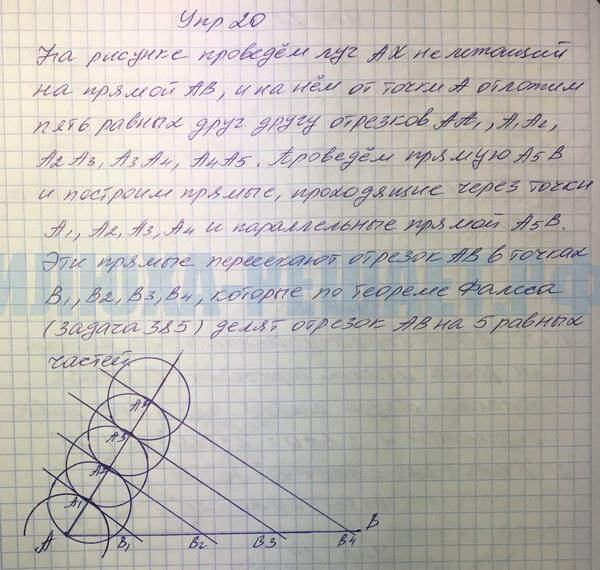 Упр 20
На рисунке проведём луч AX не лежащий
на прямой AB, и на нём от точки A отложим
пять равных друг другу отрезков AA1, A1A2,
A2A3, A3A4, A4A5. Проведём прямую A5B
и построим прямые, проходящие через точки
A1, A2, A3, A4 и параллельные прямой A5B.
Эти прямые пересекают отрезок AB в точках
B1, B2, B3, B4, которые по теореме Фалеса
(Задача 385) делят отрезок AB на 5 равных
частей.
A4
A3
A2
A1
A B1 B2 B3 B4 B